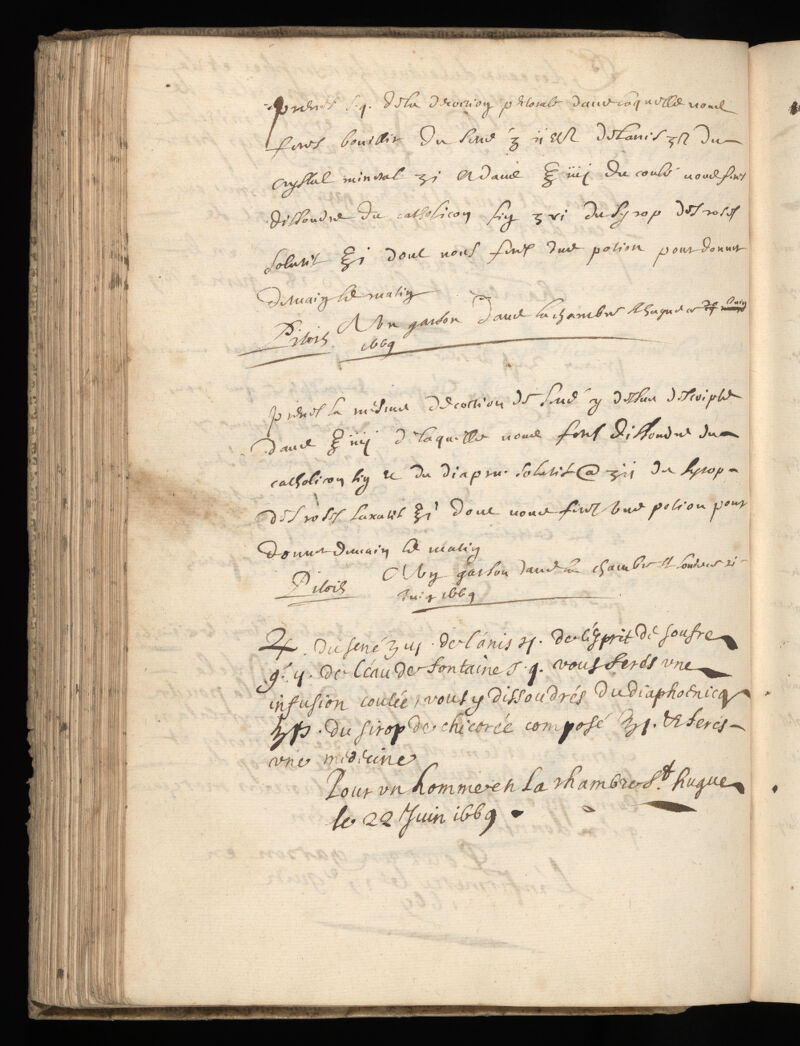 prenes s. q. de la decoction pectorale dans laquelle nous
feres bouillir du sené ʒ ii et ß de lanis ʒß du
crystal mineral ʒi et dans ℥ iiij du coulé nous feres
dissoudre du catholicon fin ʒvi du syrop des roses
solutif ℥i dont nous feres une potion pour donner
demain le matin
Pitois Un garson dans la chambre st hugues 20 Juin
1669
prenes la mesme decoction de sené y dessus descripte
dans ℥ iiij de laquelle nous feres dissoudre du
catholicon fin et du diaprun solutif @ ʒii du syrop
des roses laxatif ℥i dont nous feres une potion pour
donner demain le matin
Pitois Un garson dans la chambre st 21
Juin 1669
♃. du sené ʒ ij. de l'anis ʒj. de l'esprit de soufre
gt. y. de l'eau de fontaine s. q. vous ferés une
infusion coulée, vous y dissoudrés du diaphœnicq
ʒß. du sirop de chicorée composé ℥j. & feres
une médecine
Pour un homme en la chambre St. hugue
le 22 Juin 1669.